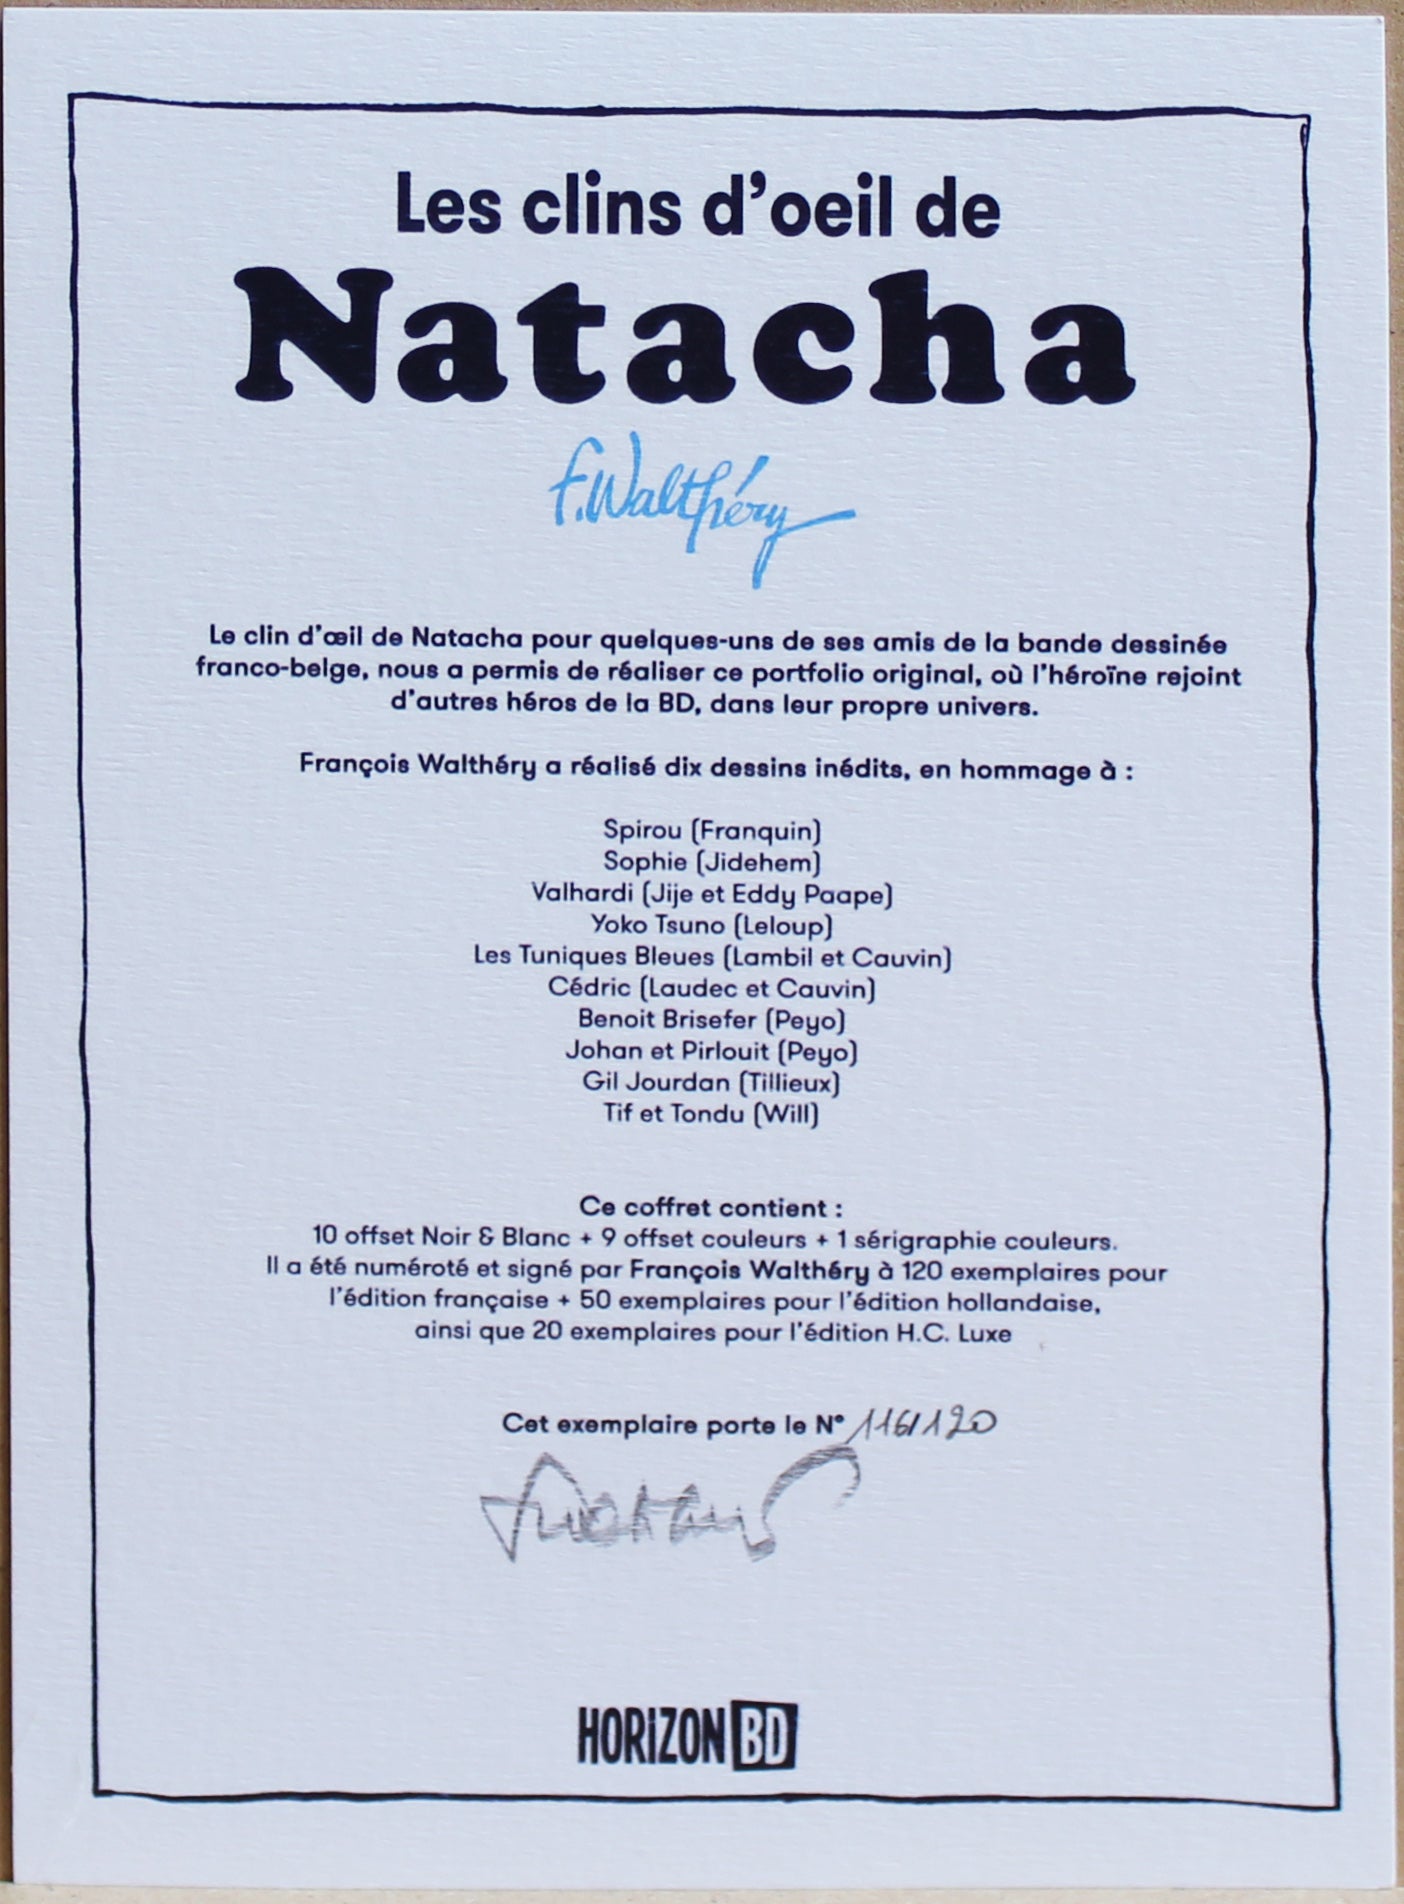 Les clins d'oeil de
Natacha
F. Walthéry
Le clin d'œil de Natacha pour quelques-uns de ses amis de la bande dessinée
franco-belge, nous a permis de réaliser ce portfolio original, où l'héroïne rejoint
d'autres héros de la BD, dans leur propre univers.
François Walthéry a réalisé dix dessins inédits, en hommage à :
Spirou (Franquin)
Sophie (Jidehem)
Valhardi (Jije et Eddy Paape)
Yoko Tsuno (Leloup)
Les Tuniques Bleues (Lambil et Cauvin)
Cédric (Laudec et Cauvin)
Benoit Brisefer (Peyo)
Johan et Pirlouit (Peyo)
Gil Jourdan (Tillieux)
Tif et Tondu (Will)
Ce coffret contient :
10 offset Noir & Blanc + 9 offset couleurs + 1 sérigraphie couleurs.
Il a été numéroté et signé par François Walthéry à 120 exemplaires pour
l'édition française + 50 exemplaires pour l'édition hollandaise,
ainsi que 20 exemplaires pour l'édition H.C. Luxe
Cet exemplaire porte le N° 116/120
HORIZON BD